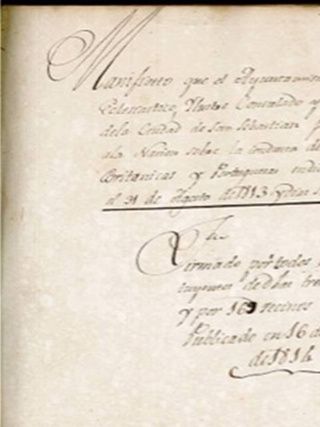 Manifiesto que el Ayuntamien
Eclesiastico, Yltustre Consulado y
dela Ciudad de San Sebastian
ala Nacion sobre la conducta de
Britanicas y Portuguesas
el 31 de Agosto de 1813 y dias
Firmado por todos
de dhas tre
y por 163 vecinos
Publicado en 16 de
de 1814